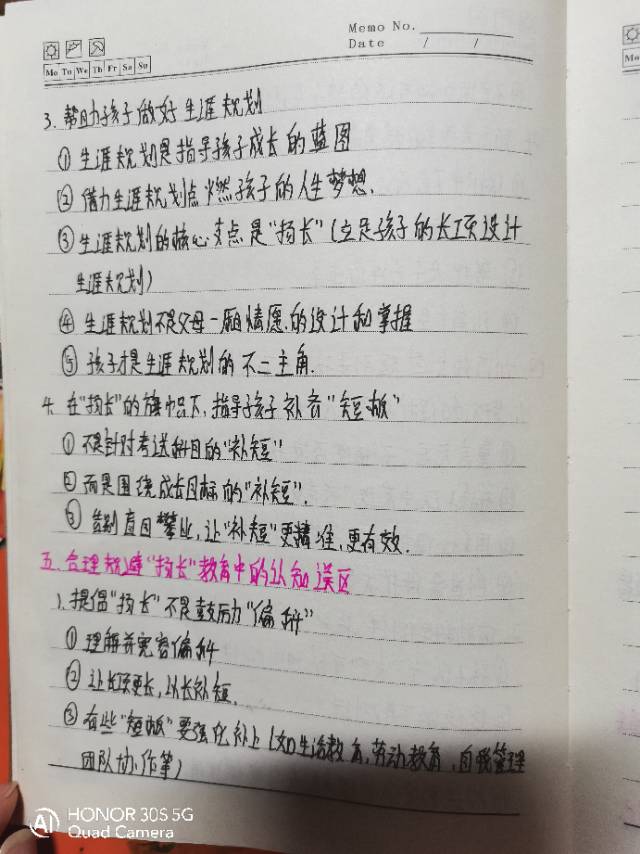 Memo No.
Date / /
Mo Tu We Th Fr Sa Su
3. 帮助孩子做好生涯规划
① 生涯规划是指导孩子成长的蓝图
② 借力生涯规划点燃孩子的人生梦想.
③ 生涯规划的核心支点是“扬长”(立足孩子的长项设计
生涯规划)
④ 生涯规划不是父母一厢情愿的设计和掌握
⑤ 孩子才是生涯规划的不二主角.
4. 在“扬长”的旗帜下,指导孩子补齐“短板”
① 不是针对考试科目的“补短”
② 而是围绕成长目标的“补短”.
③ 告别盲目攀比,让“补短”更精准,更有效.
五. 合理规避“扬长”教育中的认知误区
1. 提倡“扬长”不是鼓励“偏科”
① 理解并宽容偏科
② 让长项更长,以长补短.
③ 有些“短板”要强化补上(如生活教育,劳动教育,自我管理
团队协作等)
HONOR 30S 5G
AI Quad Camera
Mo